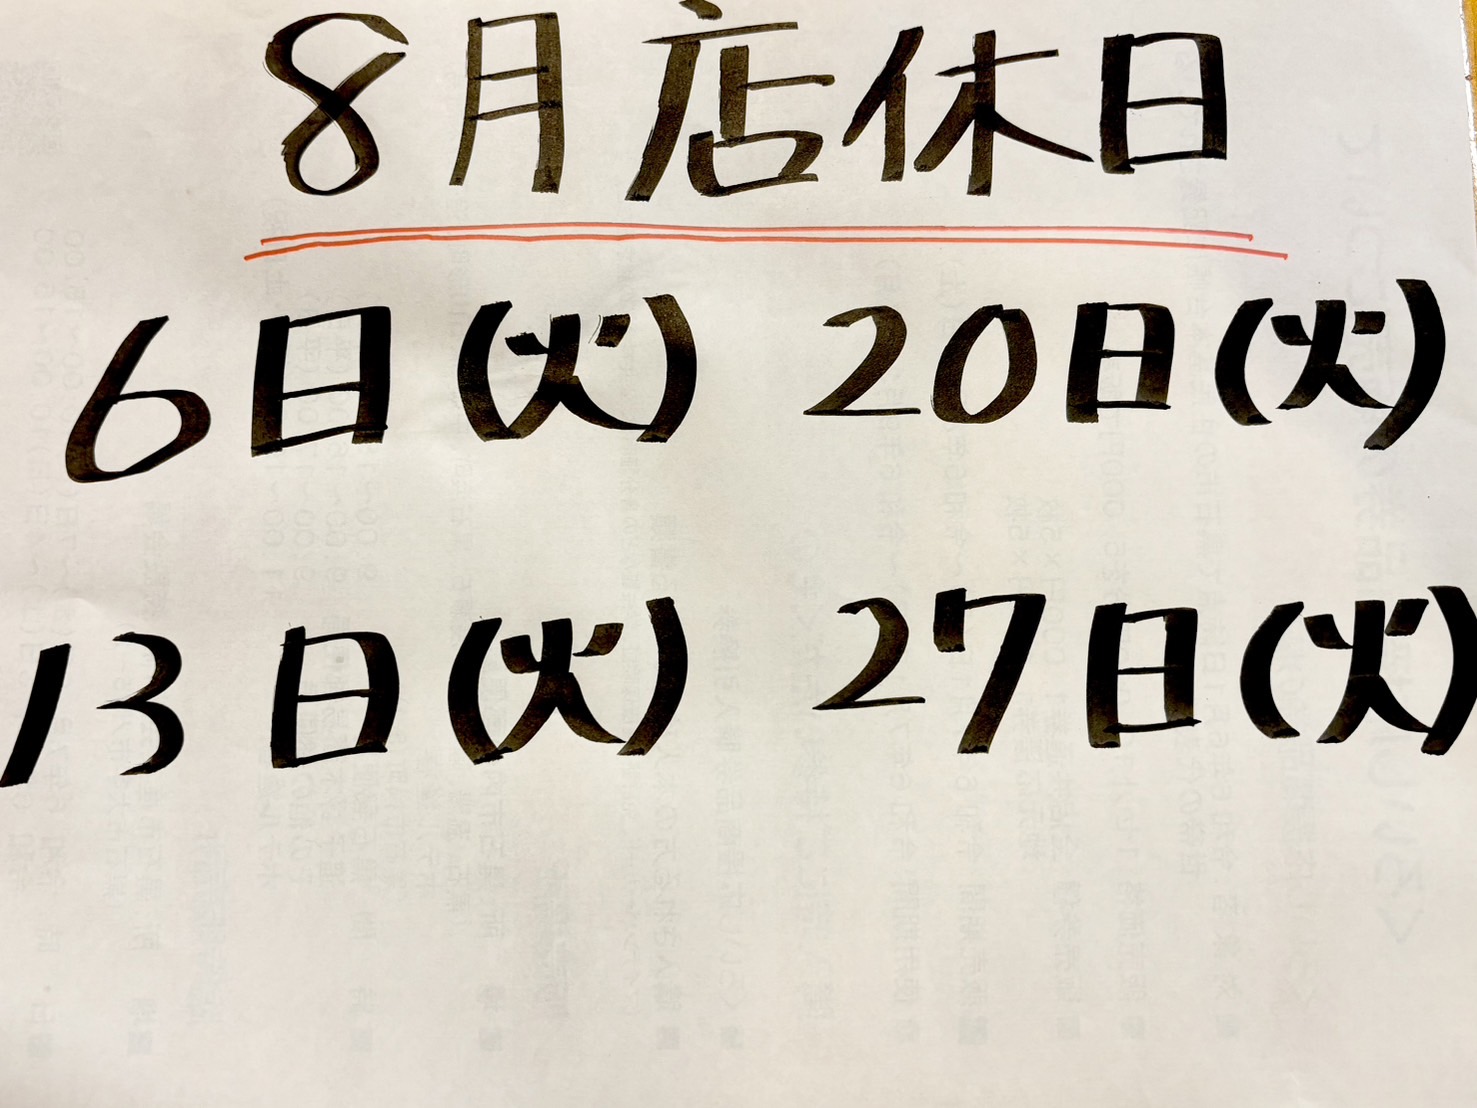 8月店休日
6日(火) 20日(火)
13日(火) 27日(火)